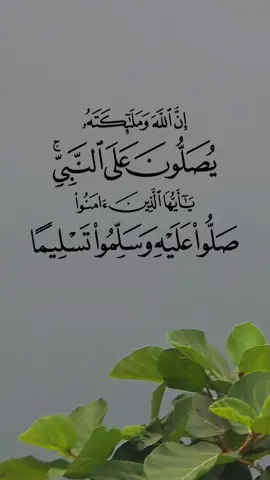 إِنَّ ٱللَّهَ وَمَلَـٰٓئِكَتَهُۥ
يُصَلُّونَ عَلَى ٱلنَّبِىِّ ۚ
يَـٰٓأَيُّهَا ٱلَّذِينَ ءَامَنُوا۟
صَلُّوا۟ عَلَيْهِ وَسَلِّمُوا۟ تَسْلِيمًا